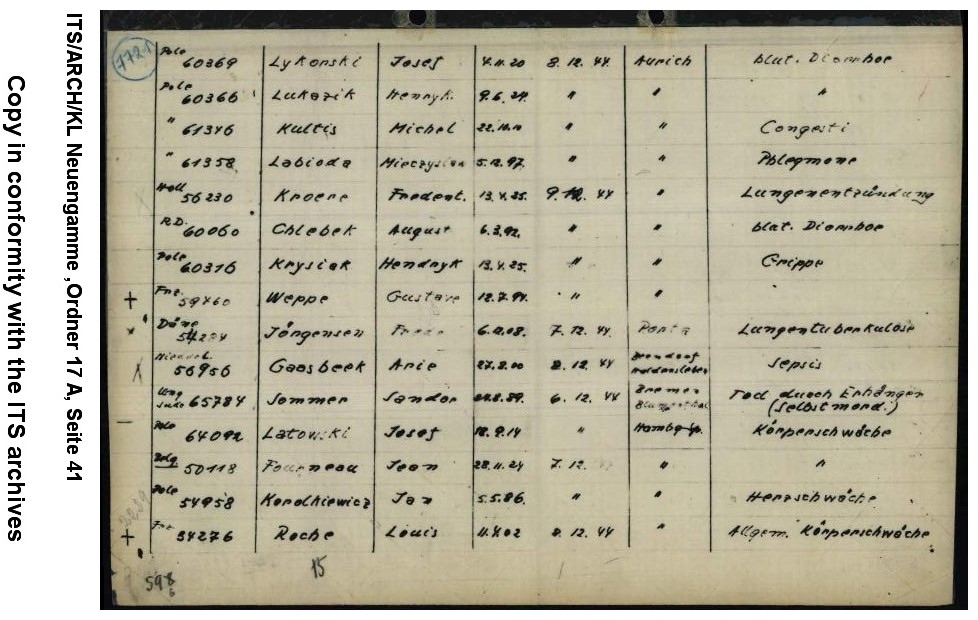 ITS/ARCH/KL Neuengamme ,Ordner 17 A, Seite 41
Copy in conformity with the ITS archives
1721
Pole 60369 Lykonski Josef 20 8. 12. 44 Aurich blut. Diarrhoe
Pole 60366 Lukazik Henryk. 9.6. " " "
" 61346 Kultis Michel 22. " " Congesti
" 61358 Labioda Mieczyslaw 97. " " Phlegmone
Holl 56230 Kroere 13.4.25. 9. 12. 44 " Lungenentzündung
R.D. 60060 Chlebek August 6.3.92. " " blut. Diarrhoe
Pole 60316 Krysiak Hendryk 13.4.25. " " Grippe
+ Frz. 59460 Weppe Gustave 12.7.94. " "
Däne Jörgensen 7. 12. 44. Porta Lungentuberkulose
X 56956 Gaasbeek Arie 27.2.00 8. 12. 44 Sepsis
Ung Jude 65784 Sommer Sandor 6. 12. 44 Bremen Blumenthal Tod durch Erhängen
(Selbstmord.)
— Pole 64092 Latowski Josef 18.9.14 " Körperschwäche
Belg. 50118 Fourneau Jean 28.11.24 7. 12. " "
Pole 54958 Karolkiewicz Jan 5.5.86. " " Herzschwäche
+ Frz 54276 Roche Louis 11.4.02 8. 12. 44 " Allgem. Körperschwäche
15
598